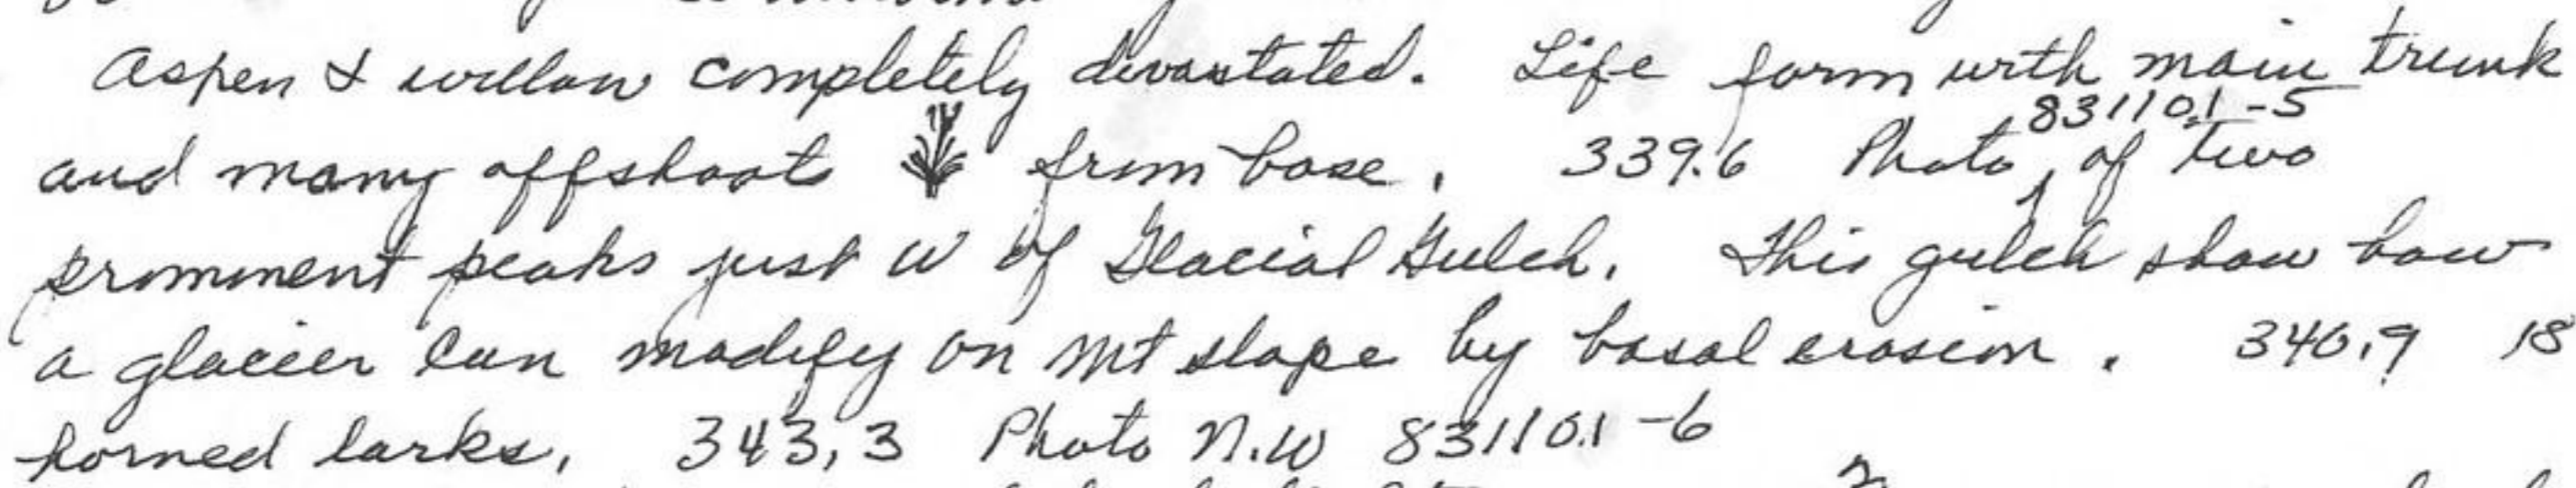 Aspen & willow completely devastated. Life form with main trunk
and many offshoots from base. 339.6 Photo 831101-5 of two
prominent peaks just W of Glacial Gulch. This gulch show how
a glacier can modify on Mt slope by basal erosion. 340.9 18
horned larks. 343.3 Photo N.W 83110.1-6